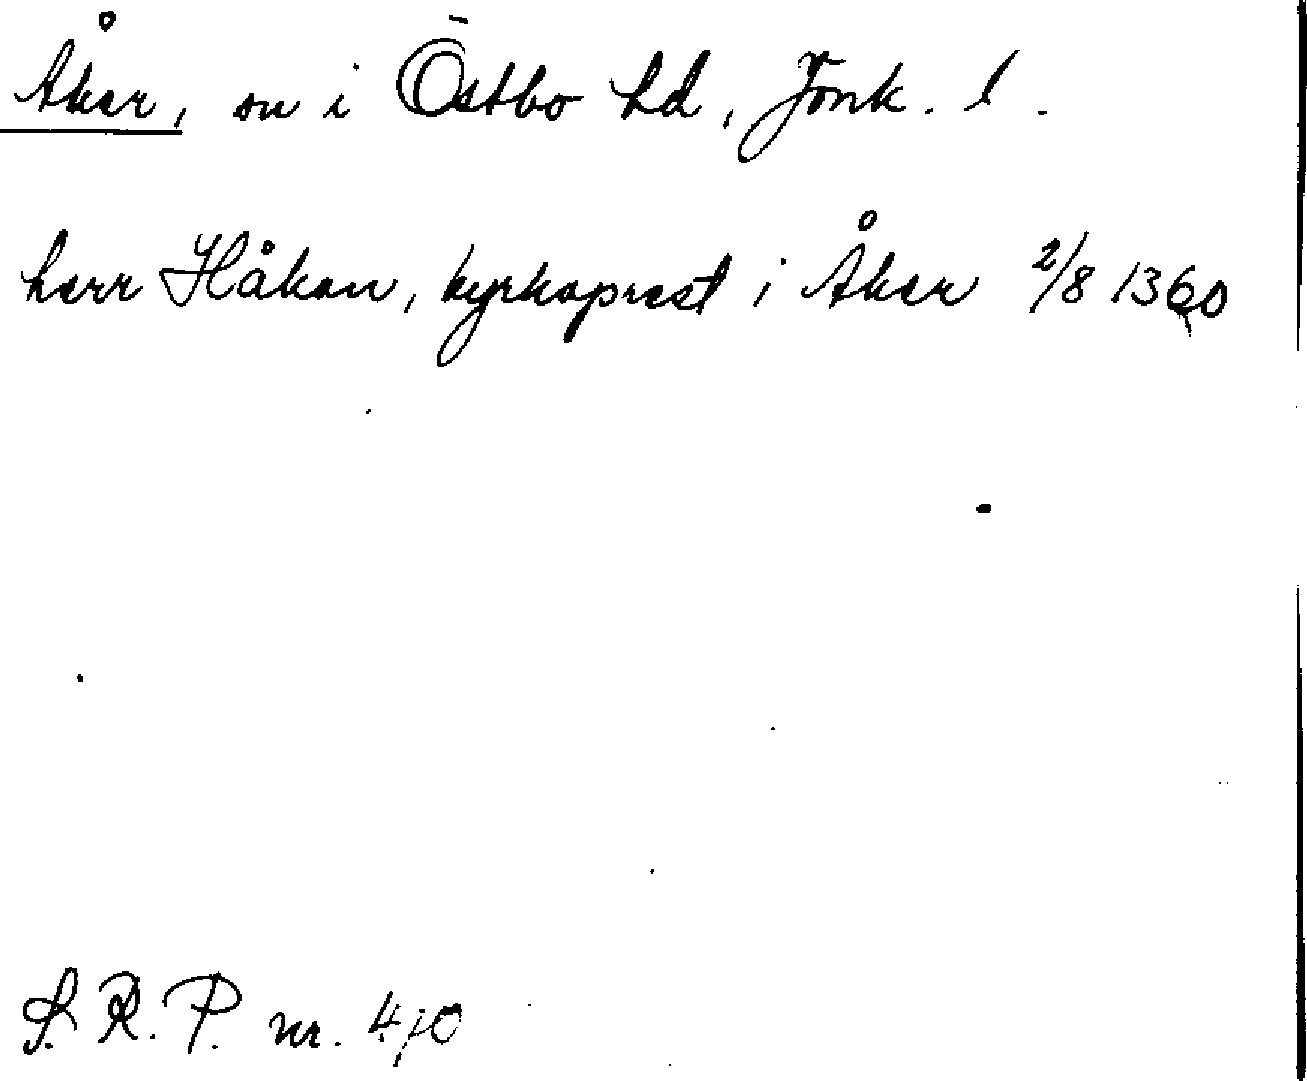 Åker, sn i Östbo hd, Jönk. l.
herr Håkan, kyrkoprest i Åker 2/8 1360
S. R. P. nr. 410